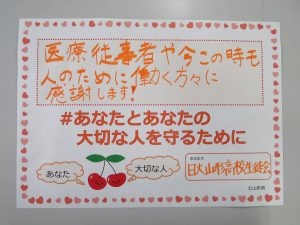 医療従事者や今この時も
人のために働く方々に
感謝します!
#あなたとあなたの
大切な人を守るために
あなた
大切な人
日大山形高校生徒会
©山形県